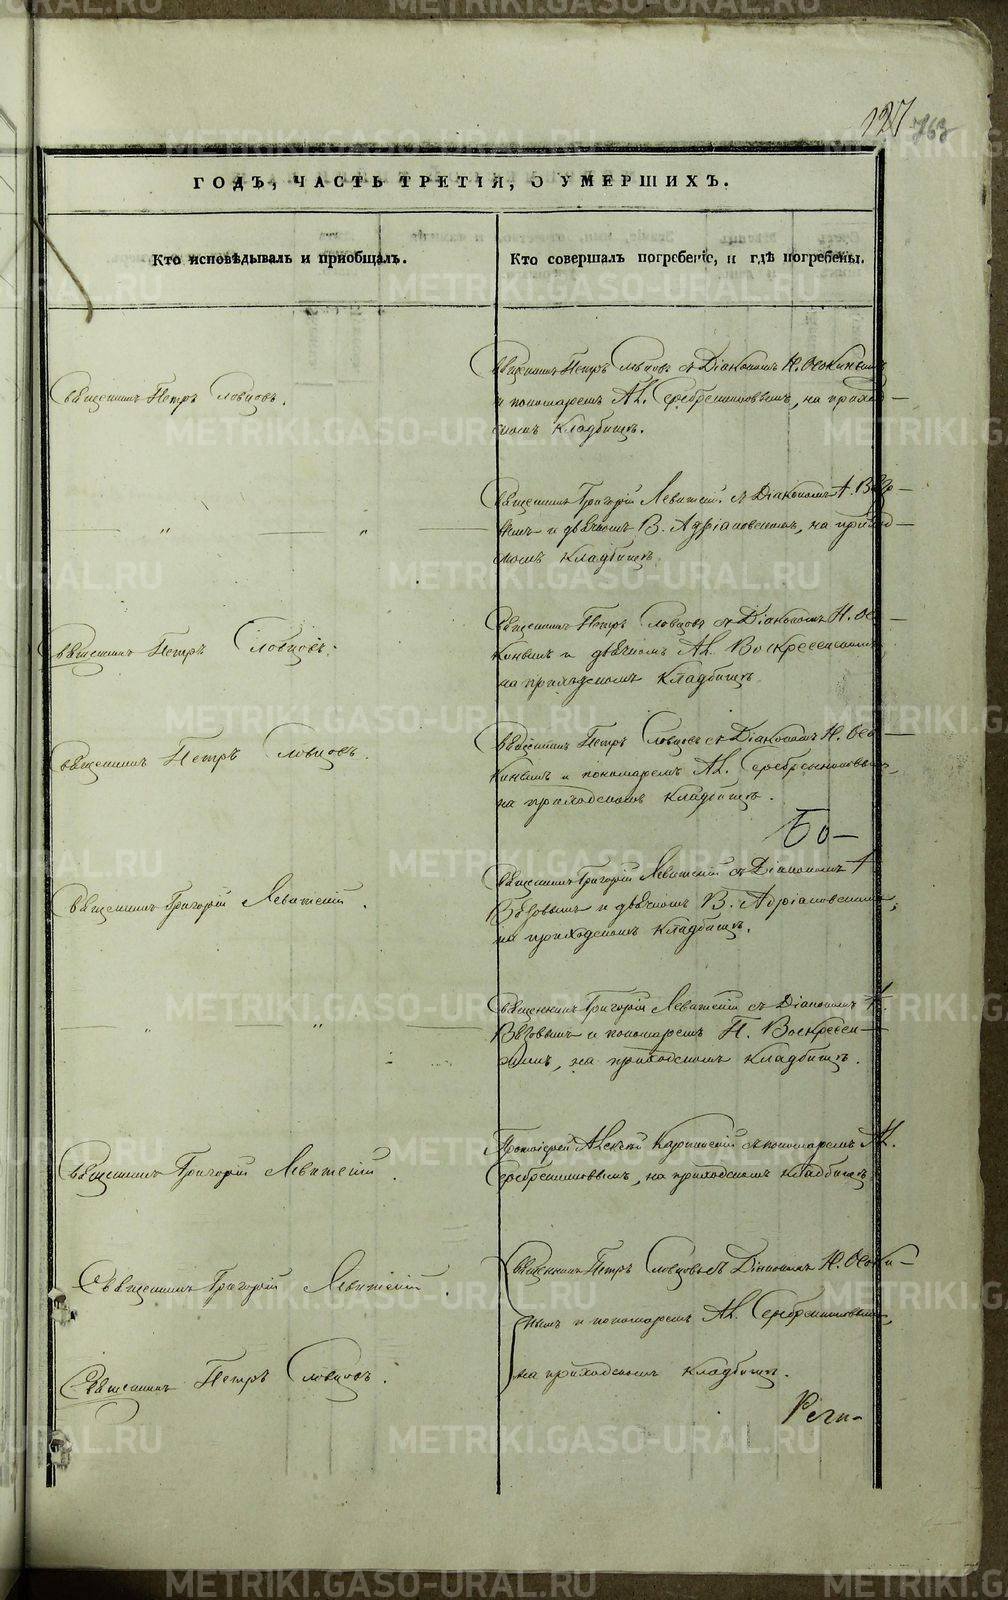 127
763
ГОДЪ, ЧАСТЬ ТРЕТІЯ, О УМЕРШИХЪ.
Кто исповѣдывалъ и пріобщалъ.
Кто совершалъ погребеніе, и гдѣ погребены.
Священникъ Петръ Словцовъ.
Священникъ Петръ Словцовъ съ Діакономъ Н. Осокинымъ
и пономаремъ Ал. Серебренниковымъ, на приход-
скомъ кладбищѣ.
— „ — „ —
Священникъ Григорій Левитскій съ Діакономъ А.
и дьячкомъ В. Адріановскимъ, на приход-
скомъ кладбищѣ.
Священникъ Петръ Словцовъ.
Священникъ Петръ Словцовъ съ Діакономъ Н. Осо-
кинымъ и дьячкомъ Ал. Воскресенскимъ,
на приходскомъ кладбищѣ.
Священникъ Петръ Словцовъ.
Священникъ Петръ Словцовъ съ Діакономъ Н. Осо-
кинымъ и пономаремъ Ал. Серебренниковымъ,
на приходскомъ кладбищѣ.
Священникъ Григорій Левитскій.
Священникъ Григорій Левитскій съ Діакономъ А.
и дьячкомъ В. Адріановскимъ,
на приходскомъ кладбищѣ.
— „ — „ —
Священникъ Григорій Левитскій съ Діакономъ А.
и пономаремъ П. Воскресен-
скимъ, на приходскомъ кладбищѣ.
Священникъ Григорій Левитскій.
Протоіерей Алексѣй Карпинскій съ пономаремъ Ал.
Серебренниковымъ, на приходскомъ кладбищѣ.
Священникъ Григорій Левитскій.
Священникъ Петръ Словцовъ.
Священникъ Петръ Словцовъ съ Діакономъ Н. Осоки-
нымъ и пономаремъ Ал. Серебренниковымъ,
на приходскомъ кладбищѣ.
METRIKI.GASO-URAL.RU